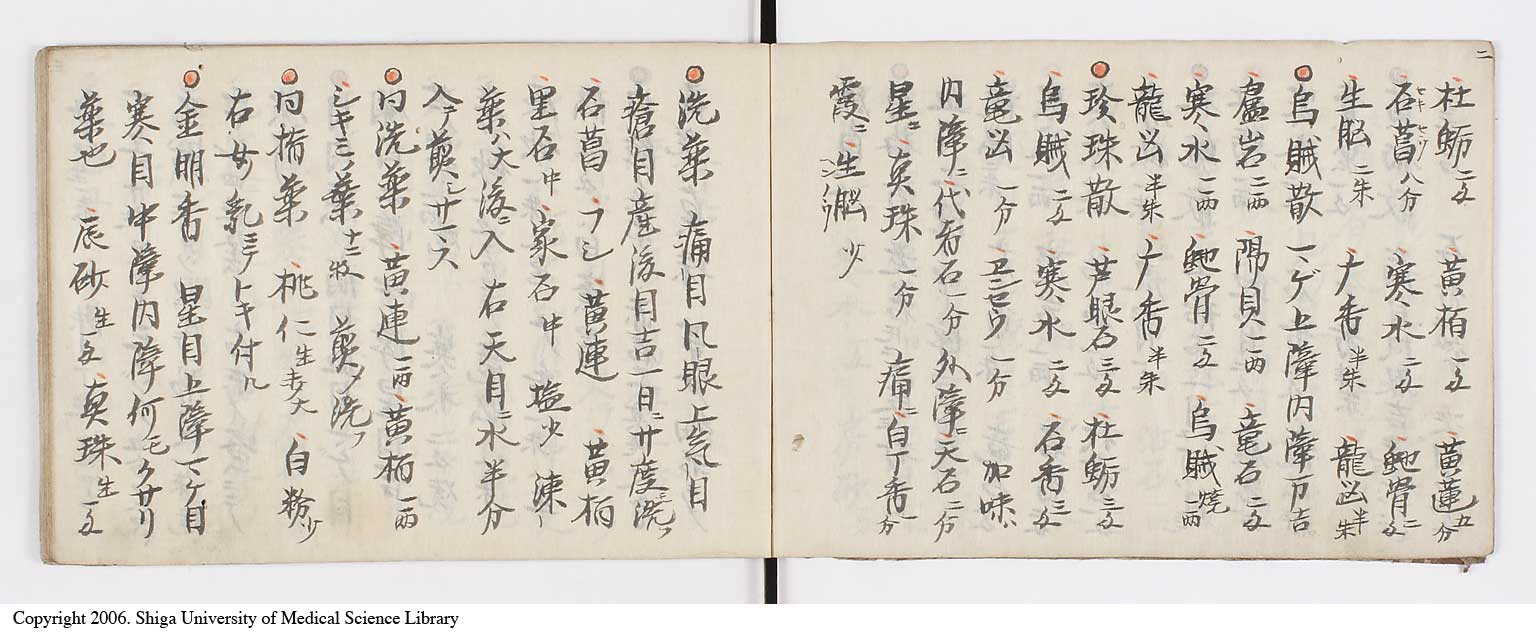 二
杜蛎 二匁 黄栢 一匁 黄蓮 五分
石菖 八分 寒水 二匁 鮑骨 二匁
生脳 二朱 广香 半朱 龍凶 半朱
烏賊散 マゲ上障内障一万吉
盧岩 二両 陽貝 一両 竜石 二匁
寒水 一両 鮑骨 二匁 烏賊 焼一両
龍凶 半朱 广香 半朱
珍珠散 芦眼石 三匁 杜蛎 三匁
烏賊 二匁 寒水 二匁 石香 三匁
竜凶 一分 一分 加味ハ
内障ニ代石 一分 外障ニ天石 二分
星ニ真珠 一分 痛ニ白丁香 一分
霞ニ 生脳 少
洗薬 痛目凡眼上気目
瘡目産後目吉一日ニ廿度洗フ
石菖 フシ 黄連 黄栢
黒石中 家石中 塩少
薬ハ大後ニ入 右天目ニ水半分
入テ煎シ廿一
同洗薬 黄連 一両 黄栢 一両
シキミノ葉 十二枚 煎メ洗フ
同指薬 桃仁 生 大 白粉 少
右女乳ニテトキ付ル
金明香 星目上障マケ目
寒目中障内障何モクサリ
薬也 辰砂 生一匁 真珠 生一匁
Copyright 2006. Shiga University of Medical Science Library